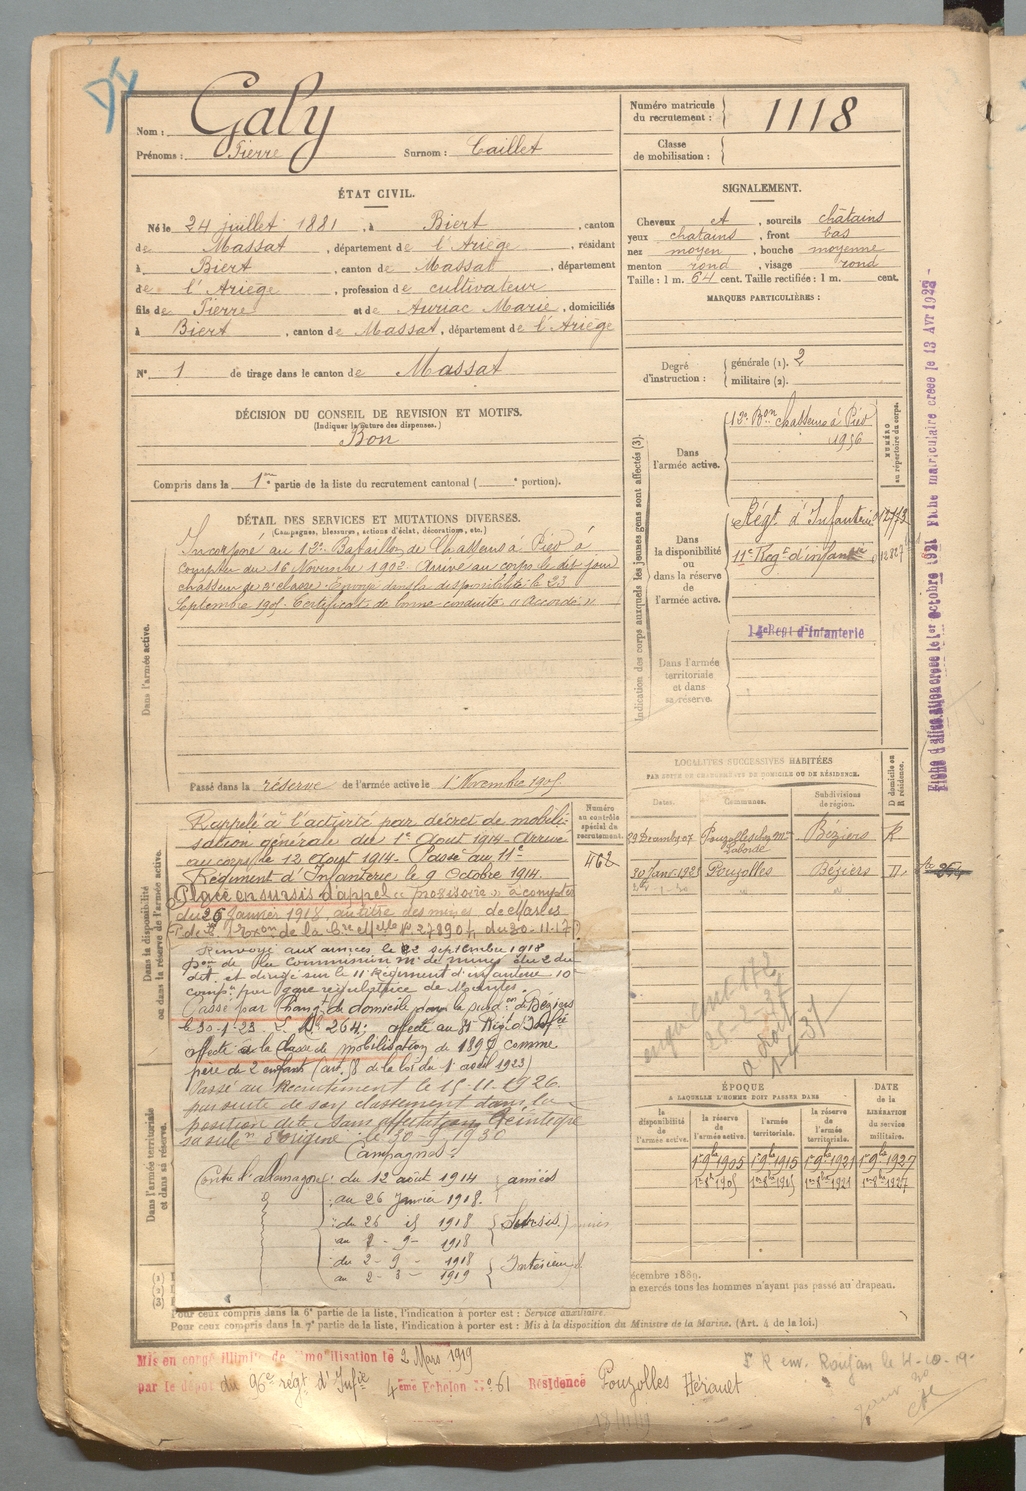 Galy
Nom :
Prénoms : Pierre Surnom : Caillet
Numéro matricule du recrutement : 1118
Classe de mobilisation :
ÉTAT CIVIL.
Né le 24 juillet 1881, à Biert, canton
de Massat, département de l'Ariège, résidant
à Biert, canton de Massat, département
de l'Ariège, profession de cultivateur
fils de Pierre et de Auriac Marie, domiciliés
à Biert, canton de Massat, département de l'Ariège
N° 1 de tirage dans le canton de Massat
SIGNALEMENT.
Cheveux et, sourcils châtains
yeux chatains, front bas
nez moyen, bouche moyenne
menton rond, visage rond
Taille : 1 m. 64 cent. Taille rectifiée : 1 m. cent.
MARQUES PARTICULIÈRES :
Degré d'instruction : générale (1). 2
militaire (2).
DÉCISION DU CONSEIL DE REVISION ET MOTIFS.
(Indiquer la nature des dispenses.)
Bon
Compris dans la 1re partie de la liste du recrutement cantonal ( e portion).
DÉTAIL DES SERVICES ET MUTATIONS DIVERSES.
(Campagnes, blessures, actions d'éclat, décorations, etc.)
Dans l'armée active.
Incorporé au 13e Bataillon de Chasseurs à Pied à
compter du 16 Novembre 1902. Arrivé au corps le dit jour
chasseur de 2e classe. Envoyé dans la disponibilité le 23
Septembre 1905. Certificat de bonne conduite "Accordé"
Passé dans la réserve de l'armée active le 1 Novembre 1905.
Indication des corps auxquels les jeunes gens sont affectés (3).
NUMÉRO au répertoire du corps.
Dans l'armée active.
13e Bon chasseurs à Pied
1956
Dans la disponibilité ou dans la réserve de l'armée active.
Régt d'Infanterie
11e Regt d'infanterie
14e Régt d'Infanterie
Dans l'armée territoriale et dans sa réserve.
Fiche matriculaire créée le 13 Avr 1932
LOCALITÉS SUCCESSIVES HABITÉES
PAR SUITE DE CHANGEMENTS DE DOMICILE OU DE RÉSIDENCE.
Dates. Communes. Subdivisions de région. D domicile ou R résidence.
Pouzolles chez Mr Laborde Béziers R
30 Janv 1923 Pouzolles Béziers D
Numéro au contrôle spécial du recrutement.
462
Dans la disponibilité ou dans la réserve de l'armée active.
Rappelé à l'activité par décret de mobili-
sation générale du 1e Aout 1914. Arrivé
au corps le 12 Aout 1914. Passé au 11e
Régiment d'Infanterie le 9 Octobre 1914.
Placé en sursis d'appel "provisoire" à compter
du 26 Janvier 1918, au titre des mines de
du 30-11-17
Renvoyé aux armées le 2 septembre 1918
pon de la commission Mre de mines du 2 du
dit et dirigé sur le 11e Régiment d'infanterie 10e
compie par gare régulatrice de
Passé par Changt de domicile dans la subdon de Béziers
le 30-1-23. 264; affecté au 81 Régt d'Infie
affecté à la classe de mobilisation de 189 comme
père de 2 enfants (art. 58 de la loi du 1 avril 1923)
Passé au Recrutement le 15-11-1926.
par suite de son classement dans la
position dite Sans affectation Réintègre
sa subon d'origine : le 30-9-1930
Campagnes :
Contre l'Allemagne : du 12 août 1914
au 26 Janvier 1918. armées
: du 26 id 1918
au 2 - 9 - 1918 Sursis
: du 2 - 9 - 1918
au 2 - 3 - 1919 Intérieur
Dans l'armée territoriale et dans sa réserve.
ÉPOQUE
A LAQUELLE L'HOMME DOIT PASSER DANS
DATE de la LIBÉRATION du service militaire.
la disponibilité de l'armée active. la réserve de l'armée active. l'armée territoriale. la réserve de l'armée territoriale.
1er 9bre 1905 1er 9bre 1915 1er 9bre 1921 1er 9bre 1927
1er 8bre 1905 1er 8bre 1915 1er 8bre 1921 1er 8bre 1927
écembre 1889.
n exercés tous les hommes n'ayant pas passé au drapeau.
Pour ceux compris dans la 6e partie de la liste, l'indication à porter est : Service auxiliaire.
Pour ceux compris dans la 7e partie de la liste, l'indication à porter est : Mis à la disposition du Ministre de la Marine. (Art. 4 de la loi.)
Mis en congé illimité de démobilisation le 2 Mars 1919
par le dépôt du 96e régt d'Infie 4ème Echelon N° 61 Résidence Pouzolles Hérault
Roujan le 4-10-19